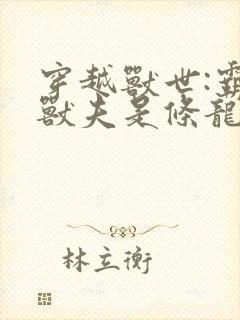 穿越獸世:霸
獸夫是條龍
林立衡